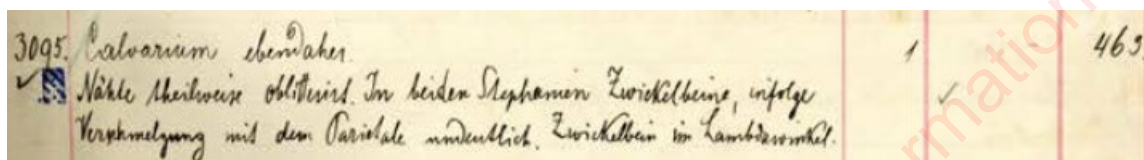 3095. Calvarium ebendaher. 1 463.
Nähte theilweise oblitterirt. In beiden Stephanien Zwickelbeine, infolge
Verschmelzung mit dem Parietale undeutlich. Zwickelbein im Lambdawinkel.
rmation